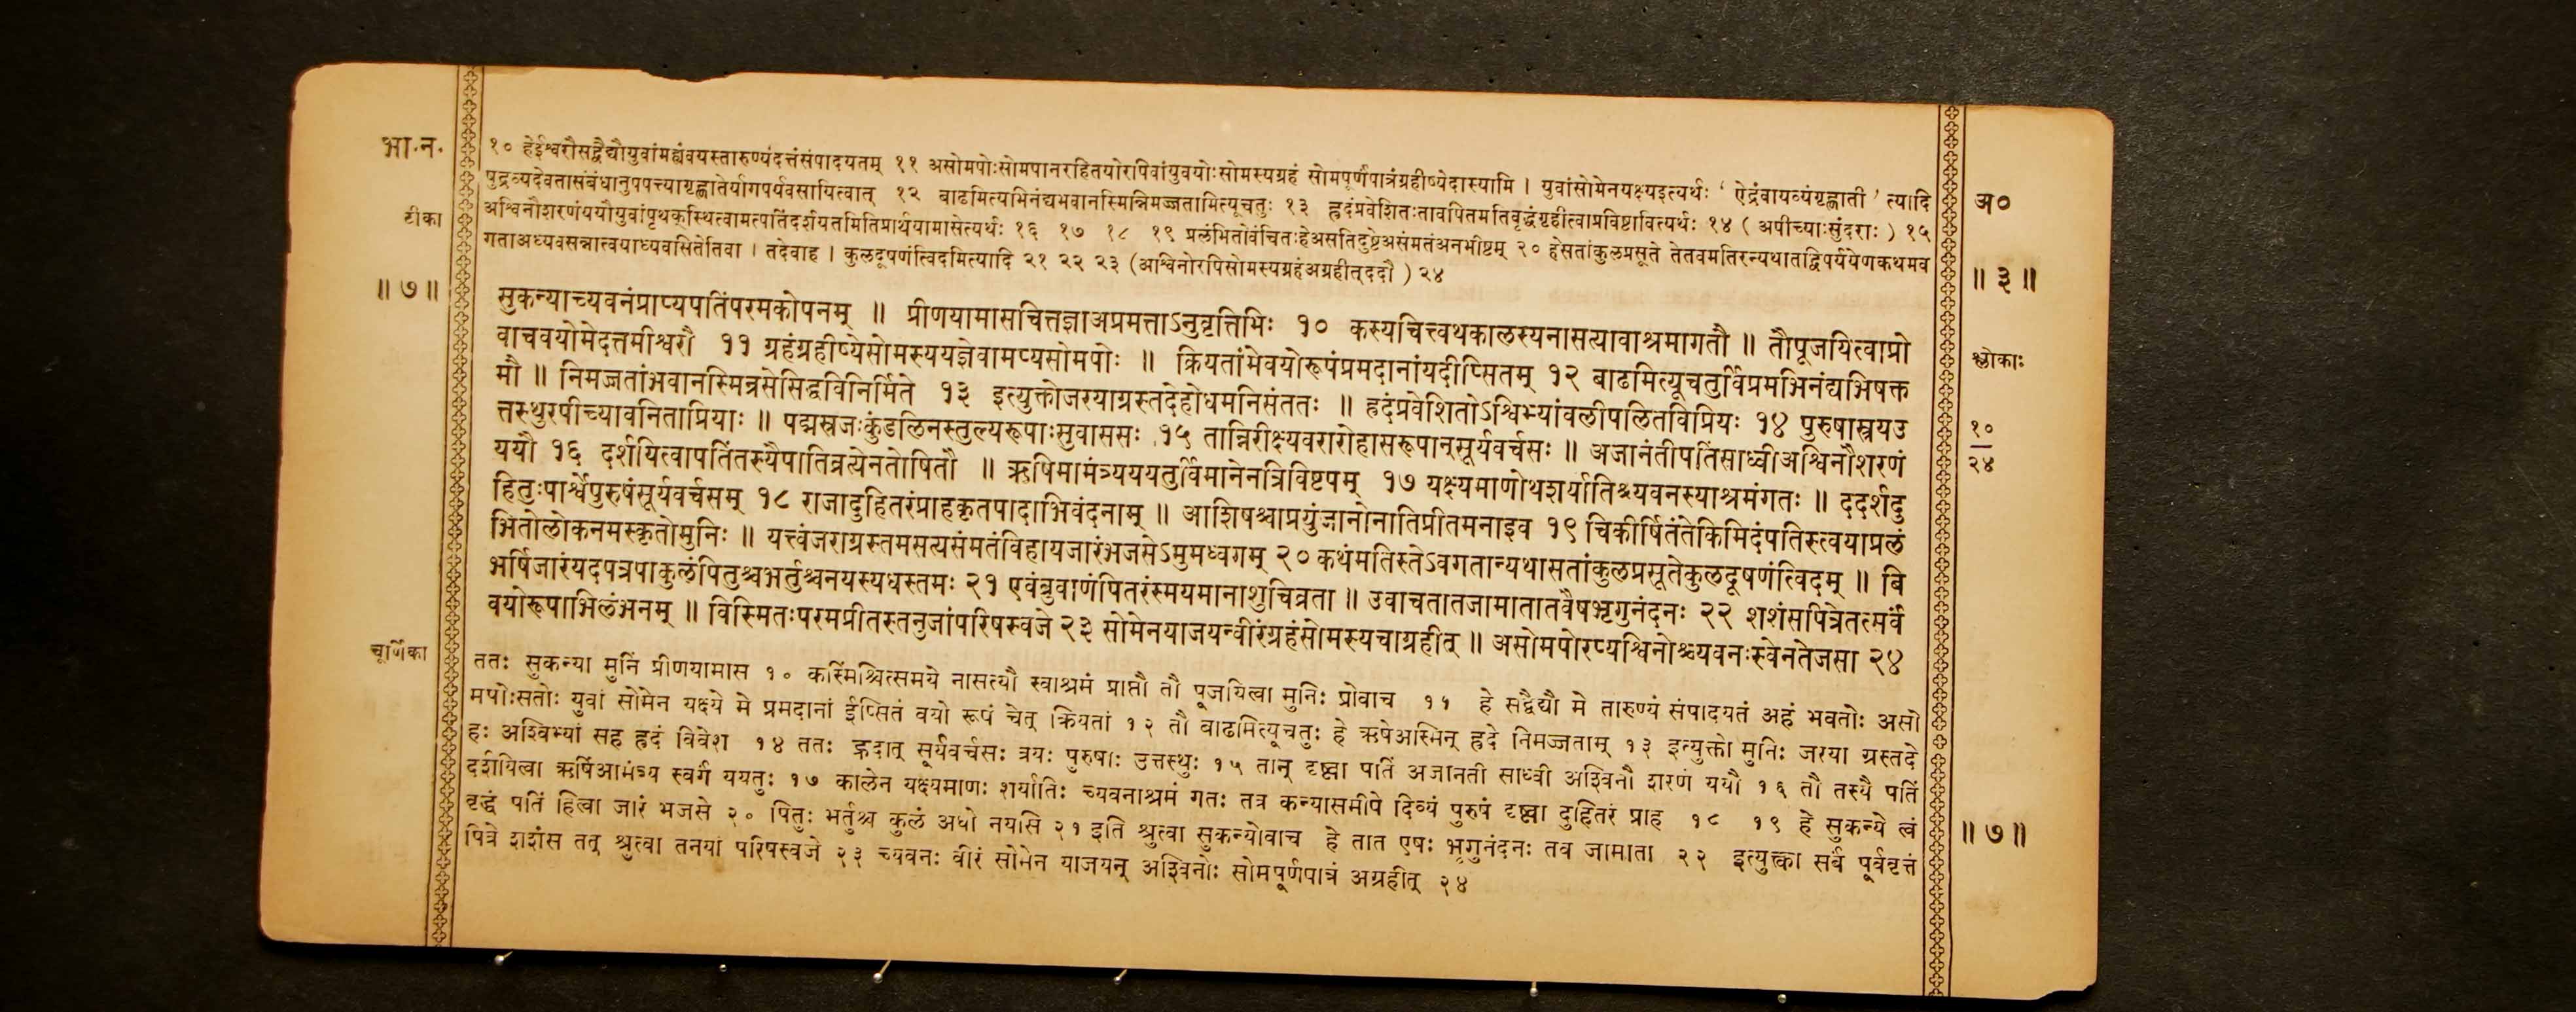 भा.न.
टीका
॥ ७ ॥
चूर्णिका
१० हेईश्वरौसद्वैद्यौयुवांमह्यंवयस्तारुण्यंदत्तंसंपादयतम् ११ असोमपोःसोमपानरहितयोरपिवांयुवयोःसोमस्यग्रहं सोमपूर्णंपात्रंग्रहीष्येदास्यामि । युवांसोमेनयक्ष्यइत्यर्थः ' ऐद्रंवायव्यंगृह्णाती ' त्यादि
पुद्रव्यदेवतासंबंधानुपपत्त्यागृह्णातेर्यागपर्यवसायित्वात् १२ बाढमित्यभिनंद्यभवानस्मिन्निमज्जतामित्यूचतुः १३ ह्रदंप्रवेशितःतावपितमतिवृद्धंगृहीत्वाप्रविष्टावित्यर्थः १४ ( अपीच्याःसुंदराः ) १५
अश्विनौशरणंययौयुवांपृथक्स्थित्वामत्पतिंदर्शयतमितिप्रार्थयामासेत्यर्थः १६ १७ १८ १९ प्रलंभितोवंचितःहेअसतिदुष्टेअसंमतंअनभीष्टम् २० हेसतांकुलप्रसूते तेतवमतिरन्यथातद्विपर्ययेणकथमव
गताअध्यवसन्नात्वयाध्यवसितेतिवा । तदेवाह । कुलदूषणंत्विदमित्यादि २१ २२ २३ (अश्विनोरपिसोमस्यग्रहंअग्रहीत्ददौ ) २४
सुकन्याच्यवनंप्राप्यपतिंपरमकोपनम् ॥ प्रीणयामासचित्तज्ञाअप्रमत्ताऽनुवृत्तिभिः १० कस्यचित्त्वथकालस्यनासत्यावाश्रमागतौ ॥ तौपूजयित्वाप्रो
वाचवयोमेदत्तमीश्वरौ ११ ग्रहंग्रहीष्येसोमस्ययज्ञेवामप्यसोमपोः ॥ क्रियतांमेवयोरूपंप्रमदानांयदीप्सितम् १२ बाढमित्यूचतुर्विप्रमभिनंद्यभिषक्त
मौ ॥ निमज्जतांभवानस्मिन्ह्रसेसिद्धविनिर्मिते १३ इत्युक्तोजरयाग्रस्तदेहोधमनिसंततः ॥ ह्रदंप्रवेशितोऽश्विभ्यांवलीपलितविप्रियः १४ पुरुषास्त्रयउ
त्तस्थुरपीच्यावनिताप्रियाः ॥ पद्मस्रजःकुंडलिनस्तुल्यरूपाःसुवाससः १५ तान्निरीक्ष्यवरारोहासरूपान्सूर्यवर्चसः ॥ अजानंतीपतिंसाध्वीअश्विनौशरणं
ययौ १६ दर्शयित्वापतिंतस्यैपातिव्रत्येनतोषितौ ॥ ऋषिमामंत्र्यययतुर्विमानेनत्रिविष्टपम् १७ यक्ष्यमाणोथशर्यातिश्च्यवनस्याश्रमंगतः ॥ ददर्शदु
हितुःपार्श्वेपुरुषंसूर्यवर्चसम् १८ राजादुहितरंप्राहकृतपादाभिवंदनाम् ॥ आशिषश्चाप्रयुंजानोनातिप्रीतमनाइव १९ चिकीर्षितंतेकिमिदंपतिस्त्वयाप्रलं
भितोलोकनमस्कृतोमुनिः ॥ यत्त्वंजराग्रस्तमसत्यसंमतंविहायजारंभजसेऽमुमध्वगम् २० कथंमतिस्तेऽवगतान्यथासतांकुलप्रसूतेकुलदूषणंत्विदम् ॥ बि
भर्षिजारंयदपत्रपाकुलंपितुश्चभर्तुश्चनयस्यधस्तमः २१ एवंब्रुवाणंपितरंस्मयमानाशुचिव्रता ॥ उवाचतातजामातातवैषभृगुनंदनः २२ शशंसपित्रेतत्सर्वं
वयोरूपाभिलंभनम् ॥ विस्मितःपरमप्रीतस्तनुजांपरिषस्वजे २३ सोमेनयाजयन्वीरंग्रहंसोमस्यचाग्रहीत् ॥ असोमपोरप्यश्विनोश्च्यवनःस्वेनतेजसा २४
ततः सुकन्या मुनिं प्रीणयामास १० कस्मिंश्चित्समये नासत्यौ स्वाश्रमं प्राप्तौ तौ पूजयित्वा मुनिः प्रोवाच ११ हे सद्वैद्यौ मे तारुण्यं संपादयतं अहं भवतोः असो
मपोःसतोः युवां सोमेन यक्ष्ये मे प्रमदानां ईप्सितं वयो रूपं चेत् क्रियतां १२ तौ बाढमित्यूचतुः हे ऋषेअस्मिन् ह्रदे निमज्जताम् १३ इत्युक्तो मुनिः जरया ग्रस्तदे
हः अश्विभ्यां सह ह्रदं विवेश १४ ततः ह्रदात् सूर्यवर्चसः त्रयः पुरुषाः उत्तस्थुः १५ तान् दृष्ट्वा पतिं अजानती साध्वी अश्विनौ शरणं ययौ १६ तौ तस्यै पतिं
दर्शयित्वा ऋषिंआमंत्र्य स्वर्गं ययतुः १७ कालेन यक्ष्यमाणः शर्यातिः च्यवनाश्रमं गतः तत्र कन्यासमीपे दिव्यं पुरुषं दृष्ट्वा दुहितरं प्राह १८ १९ हे सुकन्ये त्वं
वृद्धं पतिं हित्वा जारं भजसे २० पितुः भर्तुश्च कुलं अधो नयसि २१ इति श्रुत्वा सुकन्योवाच हे तात एषः भृगुनंदनः तव जामाता २२ इत्युक्त्वा सर्वं पूर्ववृत्तं
पित्रे शशंस तत् श्रुत्वा तनयां परिषस्वजे २३ च्यवनः वीरं सोमेन याजयन् अश्विनोः सोमपूर्णपात्रं अग्रहीत् २४
अ०
॥ ३ ॥
श्लोकाः
१०
२४
॥ ७ ॥